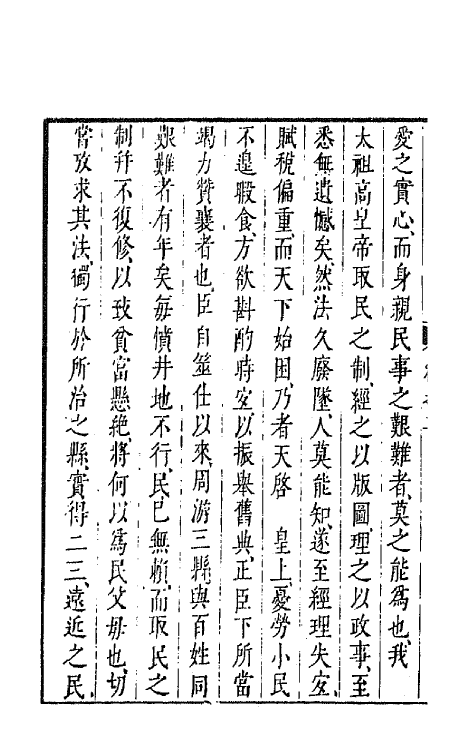 愛之實心、而身親民事之艱難者、莫之能爲也、我
太祖高皇帝取民之制、經之以版圖、理之以政事、至
悉無遺憾矣、然法久廢墜、人莫能知、遂至經理失宜、
賦稅偏重、而天下始困、乃者天啓　皇上、憂勞小民
不遑暇食、方欲斟酌時宜、以振舉舊典、正臣下所當
竭力贊襄者也、臣自筮仕以來、周游三縣、與百姓同
艱難者有年矣、每憤井地不行、民已無賴、而取民之
制幷不復修、以致貧富懸絶、將何以爲民父毋也、切
嘗攷求其法、獨行於所治之縣、實得二三、遠近之民、